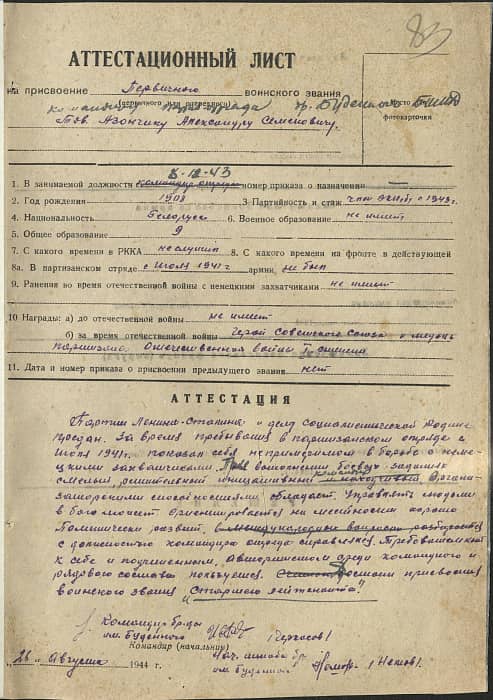 83
АТТЕСТАЦИОННЫЙ ЛИСТ
на присвоение Первичного воинского звания
(первичного или очередного)
командиру отряда Буденного
Место
фотокарточки
Тов. Азончику Александру Семеновичу
8-12-43
1. В занимаемой должности командир отряда номер приказа о назначении —
2. Год рождения 1908 3. Партийность и стаж член с 1943 г.
4. Национальность Белорус 6. Военное образование не имеет
5. Общее образование 9
7. С какого времени в РККА не служил 8. С какого времени на фронте в действующей
8а. В партизанском отряде с Июля 1941 г армии, не был
9. Ранения во время отечественной войны с немецкими захватчиками не имеет
10 Награды: а) до отечественной войны не имеет
б) за время отечественной войны Герой Советского Союза и медаль
партизана Отечественной войны I степени
11. Дата и номер приказа о присвоении предыдущего звания нет
АТТЕСТАЦИЯ
Партии Ленина-Сталина и делу социалистической Родине
предан. За время пребывания в партизанском отряде с
Июля 1941 г. показал себя непримиримом в борьбе с неме-
цкими захватчиками. При выполнении боевых заданиях
смелый решительный инициативный командир и находчивый Органи-
заторскими способностями обладает. Управлять людьми
в бою может ориентироваться на местности хорошо
Политически развит, в международных вопросах разбирается
с должностью командира отряда справляется. Требователен
к себе и подчиненным, авторитетом среди командного и
рядового состава пользуется. Достоин присвоения
воинского звания „Старшего лейтенанта"
Командир бр-ды
им. Буденного
Командир (начальник)
„26„ Августа 1944 г.
Нач. штаба бр
им. Буденного